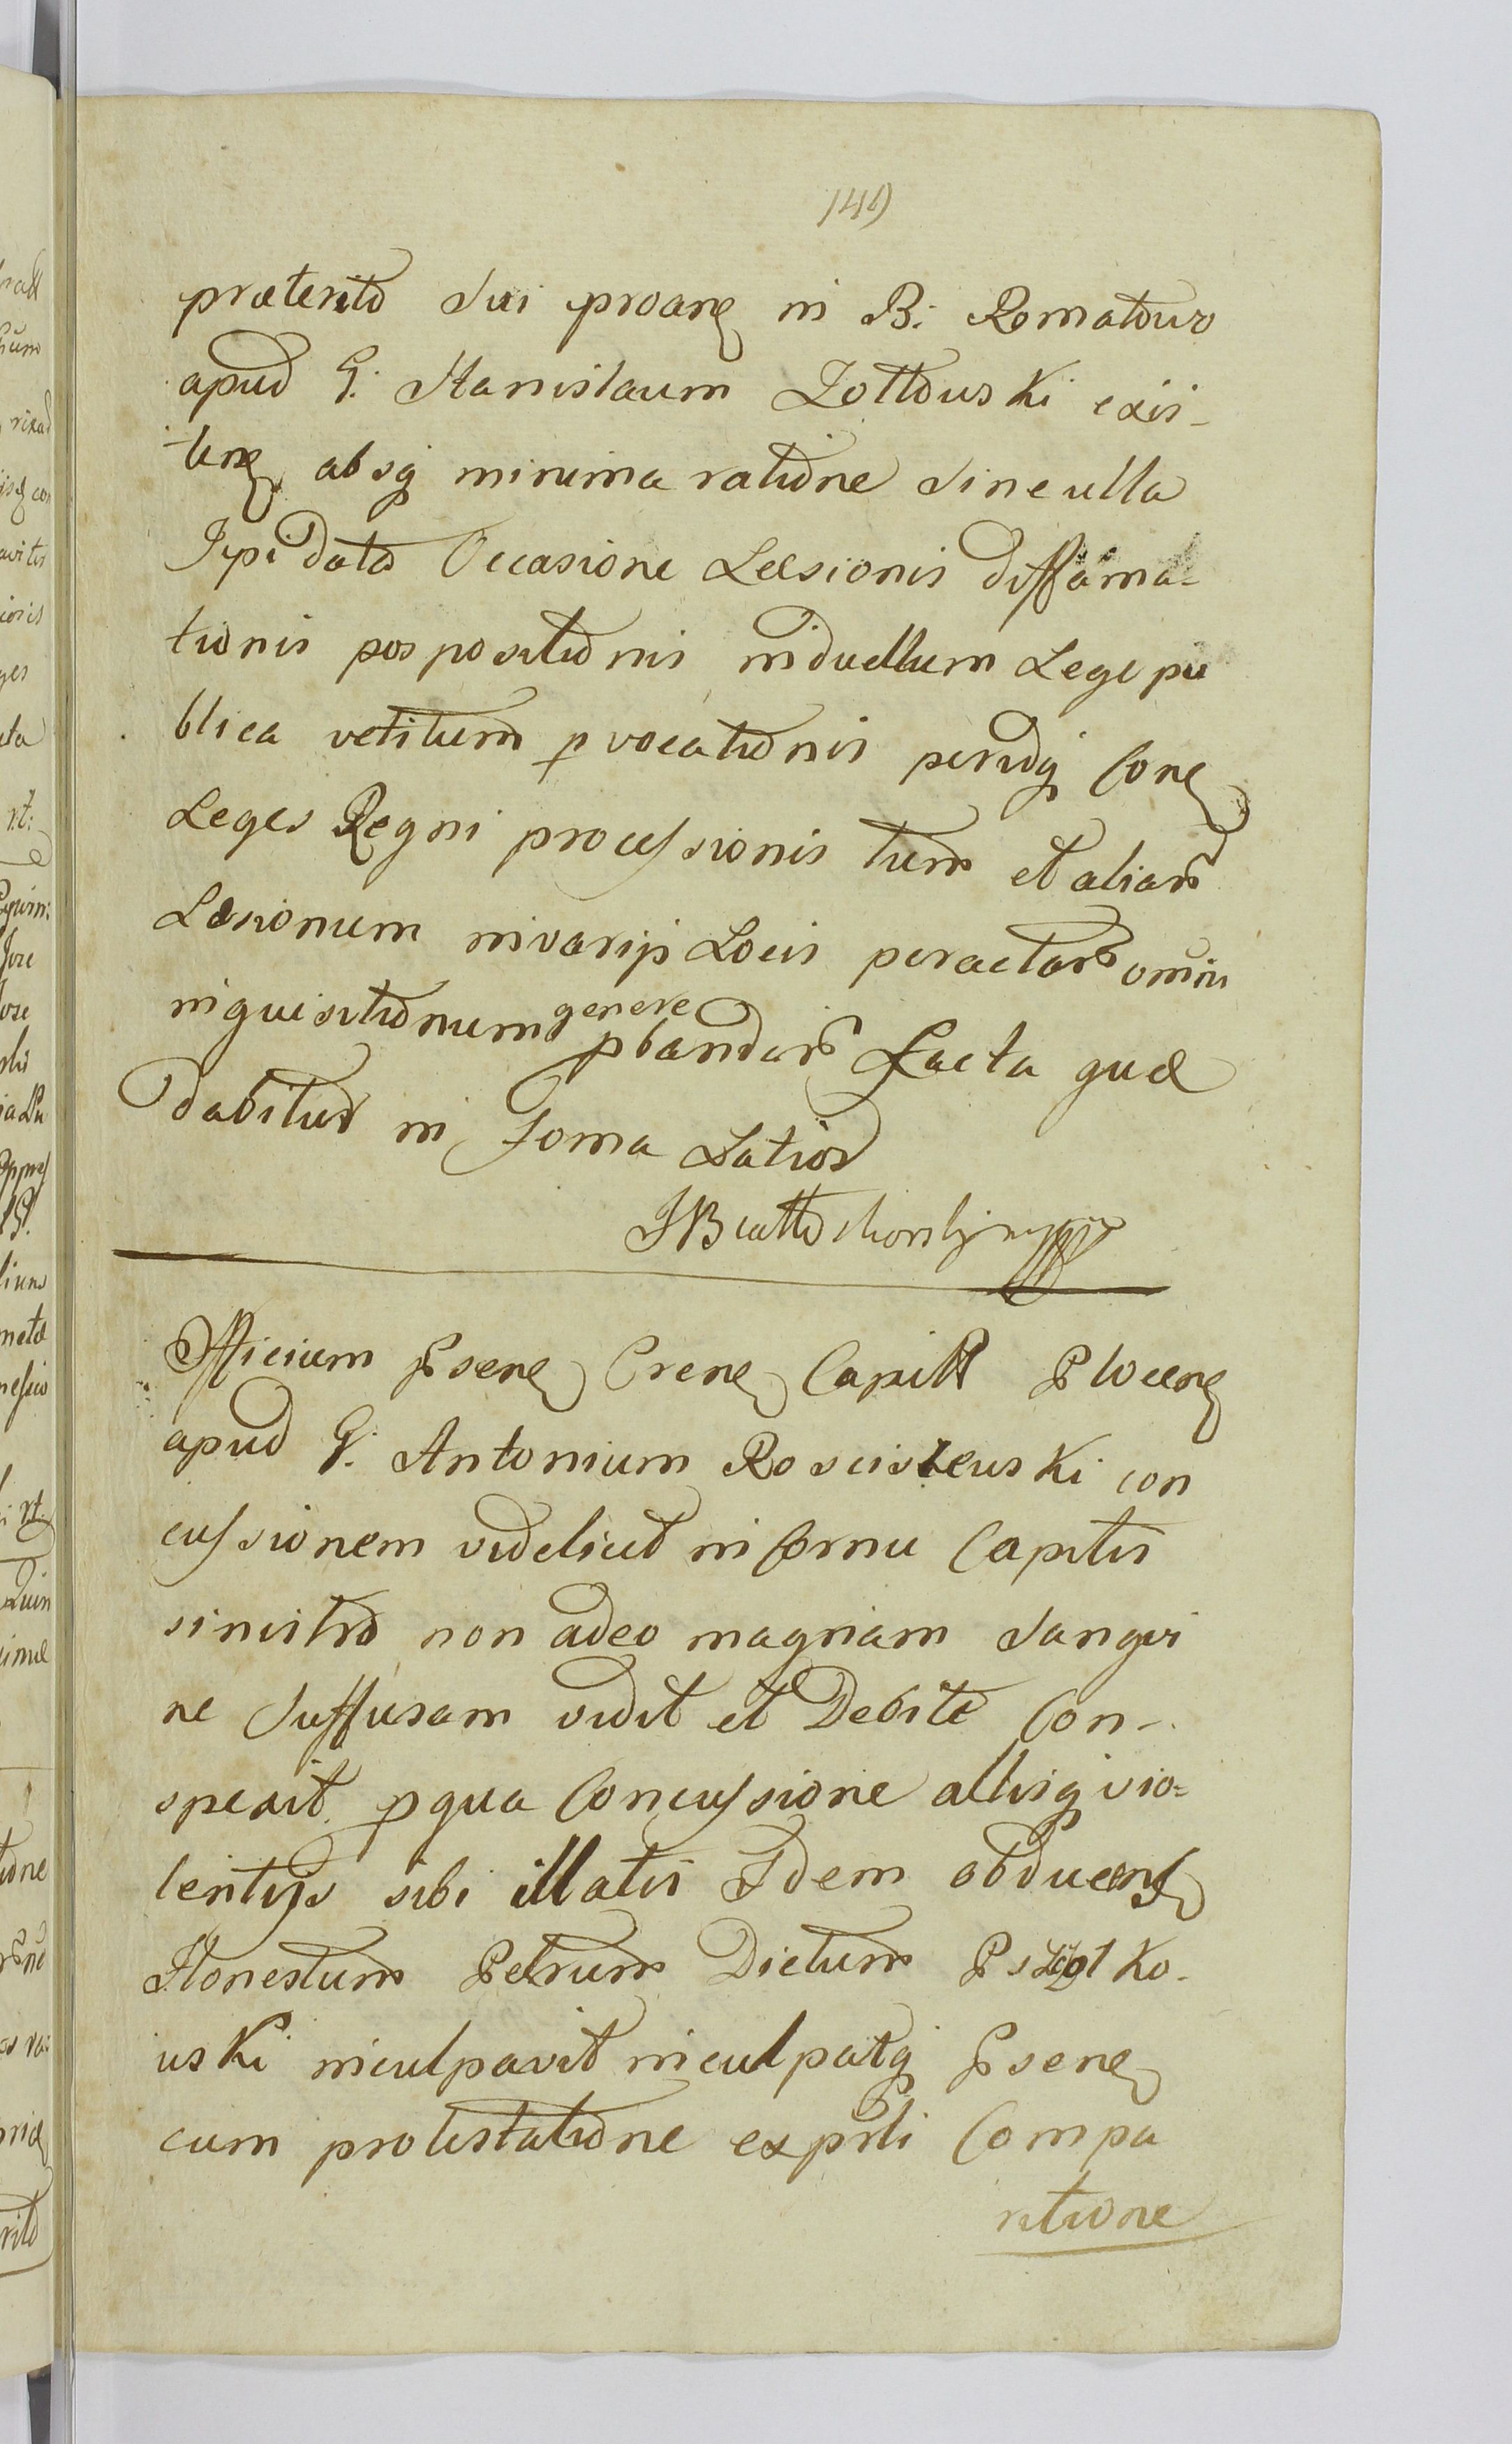 præterito sui proane in B: Romatow
apud G. Stanislaum Zottowski exis-
tene absq minima ratione sine ulla
Ipi data Occasione Læsionis diffama-
tionis pospositionis in duellum Lege pu
blica vetitum pvocationis periuq Cone
Leges Regni processionis tum et aliar
Læsionum in varijs Locis peractar omni
inquisitionum genere pbandar Facta quæ
dabitur in Foma Latior
Officium Psene Crene Capitt Plocene
apud G. Antonium Roscislewski con
cussionem videlicet in Cornu Capitis
sinistro non adeo magnam sangvi
ne suffusam vidit et Debite Con-
spexit pqua Concussione alliisq vio=
lentijs sibi illatis Idem obducens
Honestum Petrum Dictum
uski inculpavit inculpatq Psene
cum protestatione exprti Compa
ritione